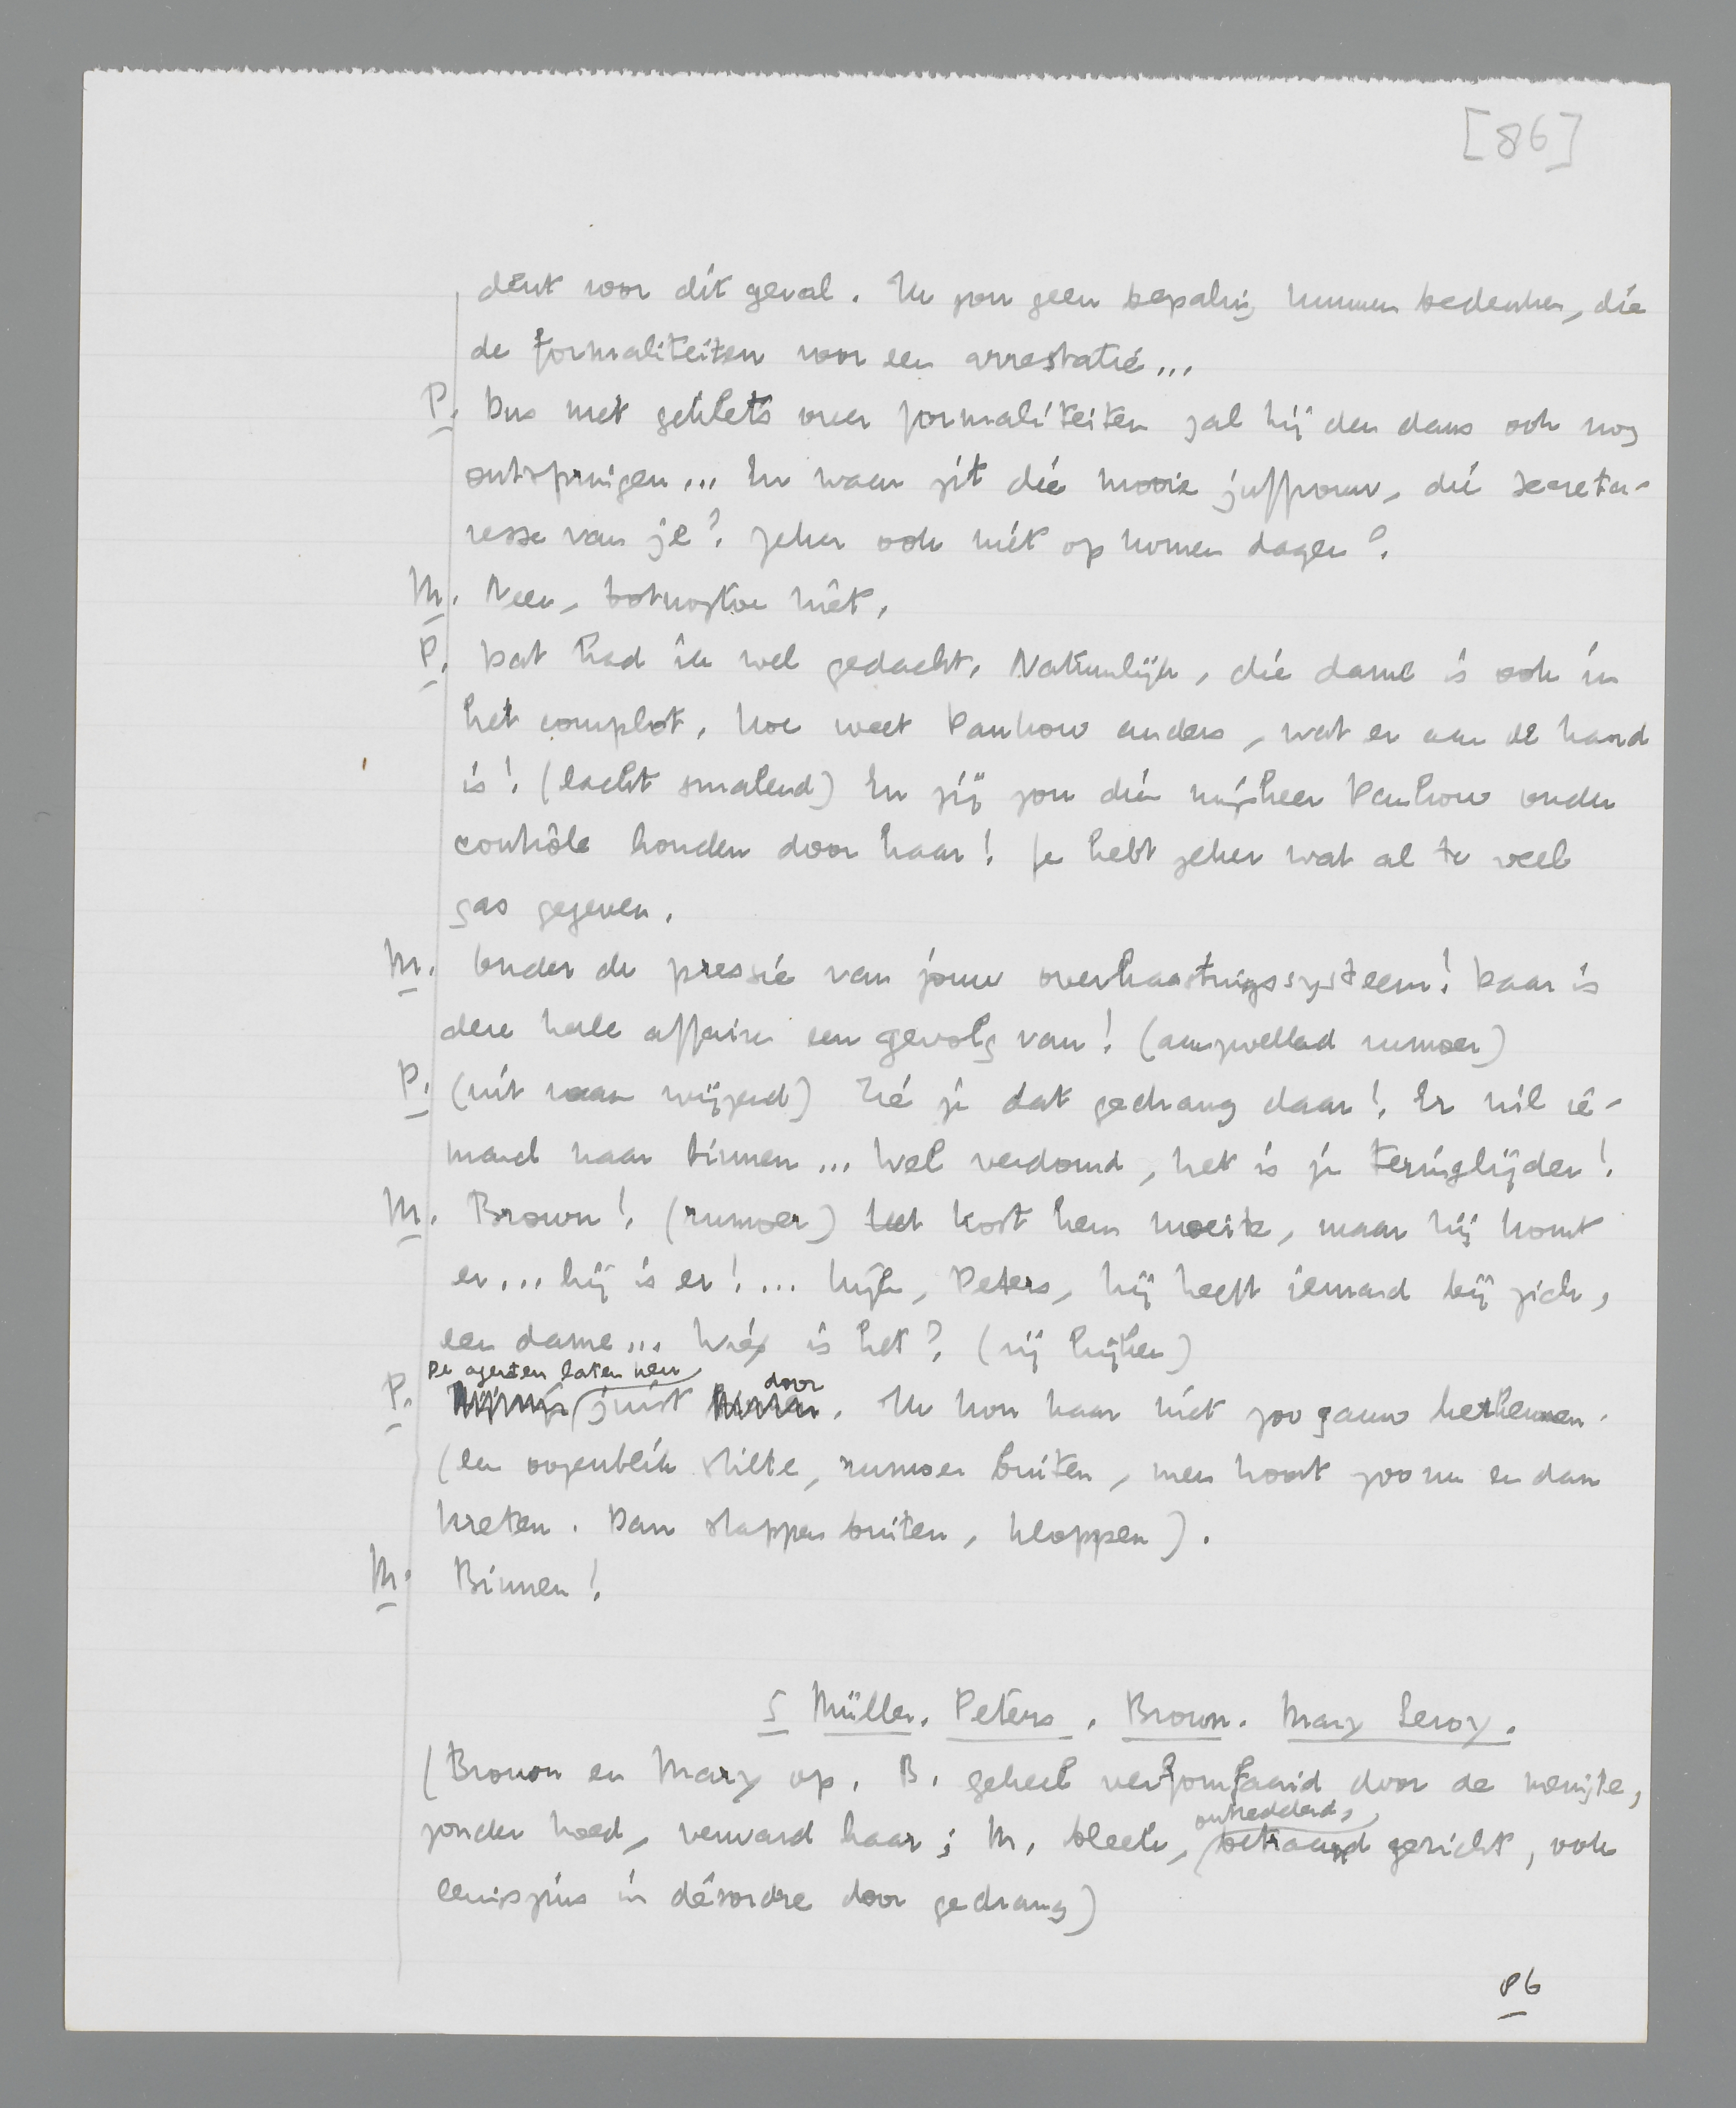 [86]
dent voor dit geval. Ik zou geen bepaling kunnen bedenken, die
de formaliteiten voor een arrestatie...
P. Dus met geklets over formaliteiten zal hij den dans ook nog
ontspringen... En waar zit die mooie juffrouw, die secreta-
resse van je? Zeker ook niet op komen dagen?
M. Neen, botweg niet.
P. Dat had ik wel gedacht. Natuurlijk, die dame is ook in
het complot, hoe weet Dankow anders, wat er aan de hand
is! (lacht smalend) En jij zou die mijnheer Dankow onder
contrôle houden door haar! Je hebt zeker wat al te veel
gas gegeven.
M. Onder de pressie van jouw overhaastingssysteem! Daar is
deze heele affaire een gevolg van! (aanzwellend rumoer)
P. (uit raam wijzend) Zie je dat gedrang daar! Er wil ie-
mand naar binnen... Wel verdomd, het is je teringlijder!
M. Brown! (rumoer) Het kost hem moeite, maar hij komt
er... hij is er!... Kijk, Peters, hij heeft iemand bij zich,
een dame... Wie is het? (zij kijken)
De agenten laten hen door
P. juist. Ik kon haar niet zoo gauw herkennen.
(een oogenblik stilte, rumoer buiten, men hoort zoo nu en dan
kreten. Dan stappen buiten, kloppen).
M. Binnen!
5 Müller. Peters. Brown. Mary Leroy.
(Brown en Mary op. B. geheel verfomfaaid door de menigte,
ontredderd,
zonder hoed, verward haar; M. bleek, betraand gezicht, ook
eenigszins in désordre door gedrang)
86